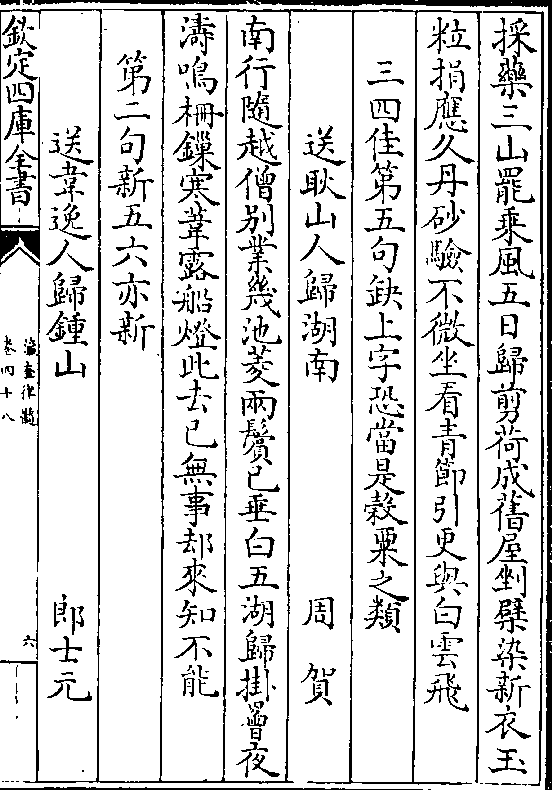 採藥三山罷乘風五日歸剪荷成舊屋劚蘗染新衣玉
粒捐應久丹砂驗不微坐看青節引更與白雲飛
三四佳第五句缺上字恐當是穀粟之類
送耿山人歸湖南　周賀
南行隨越僧別業幾池菱兩鬢已垂白五湖歸掛罾夜
濤鳴柵鏁寒葦露船燈此去已無事却來知不能
第二句新五六亦新
送韋逸人歸鍾山　郎士元
欽定四庫全書
瀛奎律髓
卷四十八
六